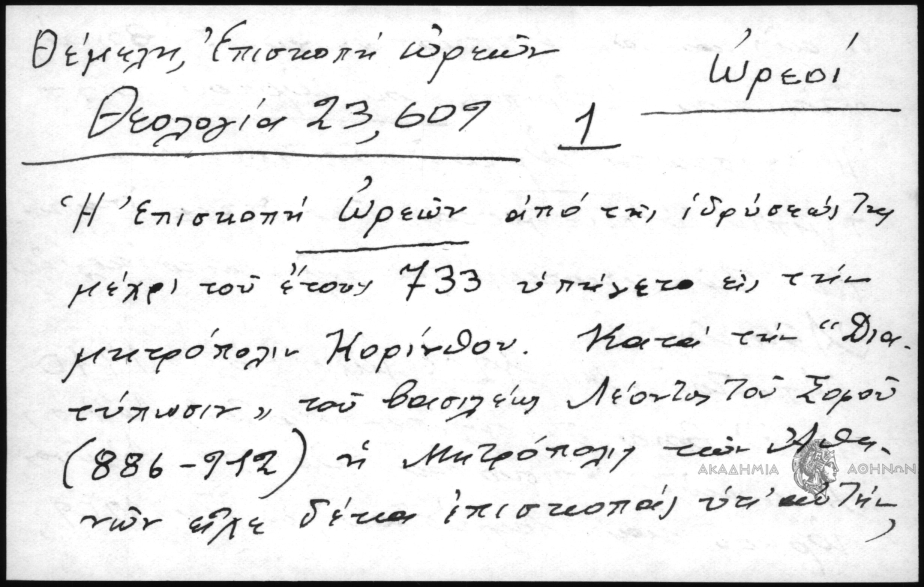 Θέμελη, Ἐπισκοπή Ὠρεῶν
Ὠρεοί
Θεολογία 23, 609
1
Ἡ Ἐπισκοπή Ὠρεῶν ἀπό τῆς ἱδρύσεώς της
μέχρι τοῦ ἔτους 733 ὑπήγετο εἰς τήν
μητρόπολιν Κορίνθου. Κατά τήν "Δια-
τύπωσιν" τοῦ βασιλέως Λέοντος τοῦ Σοφοῦ
(886-912) ἡ Μητρόπολις τῶν Ἀθη-
νῶν εἶχε δέκα ἐπισκοπάς ὑπ' αὐτήν,
ΑΚΑΔΗΜΙΑ ΑΘΗΝΩΝ